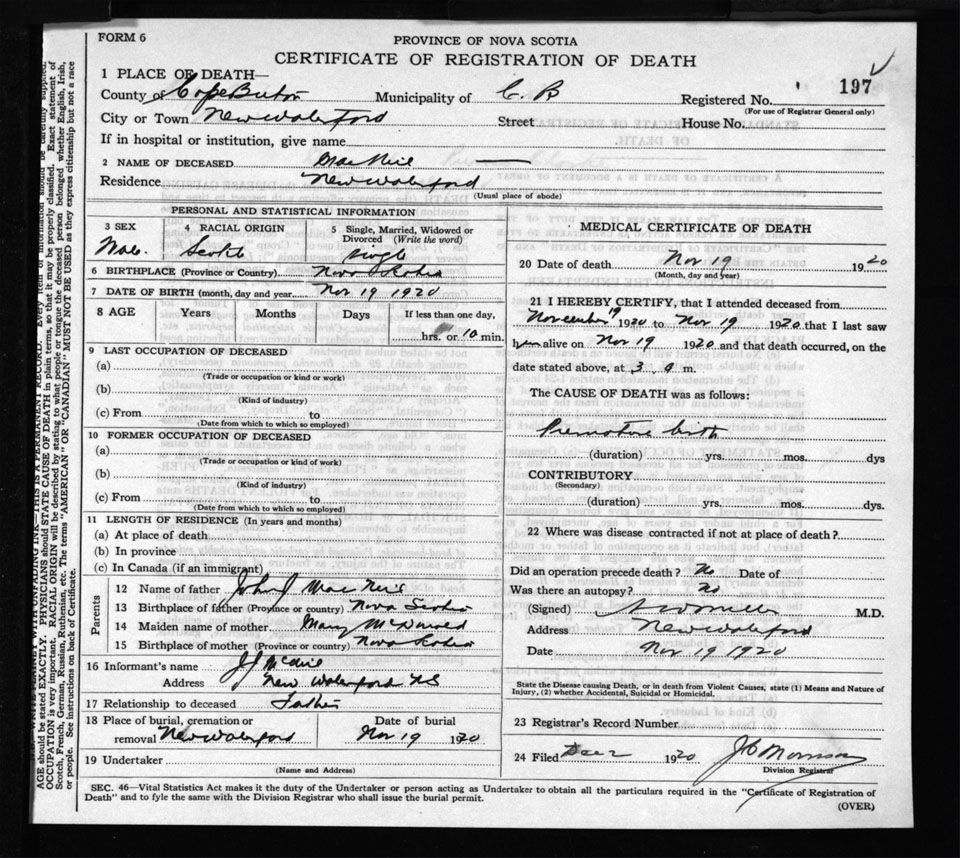 FORM 6
PROVINCE OF NOVA SCOTIA
CERTIFICATE OF REGISTRATION OF DEATH
197
1 PLACE OF DEATH—
County of Cape Breton Municipality of C. B Registered No.
(For use of Registrar General only)
City or Town New Waterford Street House No.
If in hospital or institution, give name
2 NAME OF DECEASED MacNeil —
Residence New Waterford
(Usual place of abode)
PERSONAL AND STATISTICAL INFORMATION
3 SEX 4 RACIAL ORIGIN 5 Single, Married, Widowed or Divorced (Write the word)
Male Scotch single
6 BIRTHPLACE (Province or Country) Nova Scotia
7 DATE OF BIRTH (month, day and year) Nov 19 1920
8 AGE Years Months Days If less than one day,
hrs. or 10 min.
9 LAST OCCUPATION OF DECEASED
(a)
(Trade or occupation or kind or work)
(b)
(Kind of industry)
(c) From to
(Date from which to which so employed)
10 FORMER OCCUPATION OF DECEASED
(a)
(Trade or occupation or kind of work)
(b)
(Kind of industry)
(c) From to
(Date from which to which so employed)
11 LENGTH OF RESIDENCE (In years and months)
(a) At place of death
(b) In province
(c) In Canada (if an immigrant)
Parents
12 Name of father John J MacNeil
13 Birthplace of father (Province or country) Nova Scotia
14 Maiden name of mother Mary McDonald
15 Birthplace of mother (Province or country) Nova Scotia
16 Informant's name J J McNeil
Address New Waterford NS
17 Relationship to deceased Father
18 Place of burial, cremation or Date of burial
removal New Waterford Nov 19 1920
19 Undertaker
(Name and Address)
MEDICAL CERTIFICATE OF DEATH
20 Date of death Nov 19 1920
(Month, day and year)
21 I HEREBY CERTIFY, that I attended deceased from
November 19 1920 to Nov 19 1920 that I last saw
him alive on Nov 19 1920 and that death occurred, on the
date stated above, at 3 a m.
The CAUSE OF DEATH was as follows:
Premature birth
(duration) yrs. mos. dys
CONTRIBUTORY
(Secondary)
(duration) yrs. mos. dys.
22 Where was disease contracted if not at place of death?
Did an operation precede death? No Date of
Was there an autopsy? No
(Signed) M.D.
Address New Waterford
Date Nov 19 1920
State the Disease causing Death, or in death from Violent Causes, state (1) Means and Nature of
Injury, (2) whether Accidental, Suicidal or Homicidal.
23 Registrar's Record Number
24 Filed Dec 2 1920 Morrison
Division Registrar
SEC. 46—Vital Statistics Act makes it the duty of the Undertaker or person acting as Undertaker to obtain all the particulars required in the "Certificate of Registration of
Death" and to fyle the same with the Division Registrar who shall issue the burial permit.
(OVER)